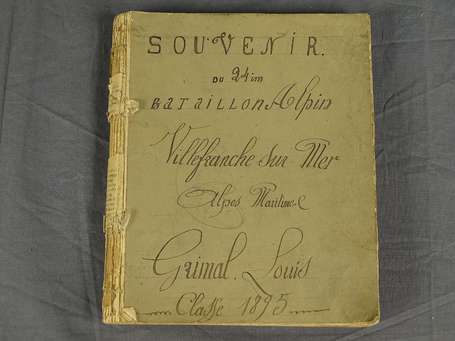 SOUVENIR.
DU 24im
BATAILLON Alpin
Villefranche sur Mer
Alpes Maritime
Grimal. Louis
Classe 1895